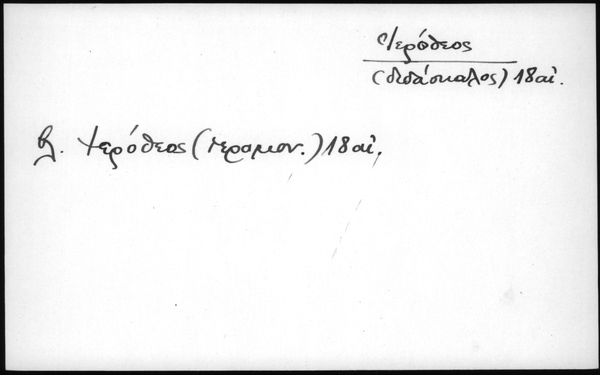 Ἱερόθεος
(διδάσκαλος) 18 αἰ.
βλ. Ἱερόθεος (ἱερομον.) 18 αἰ.